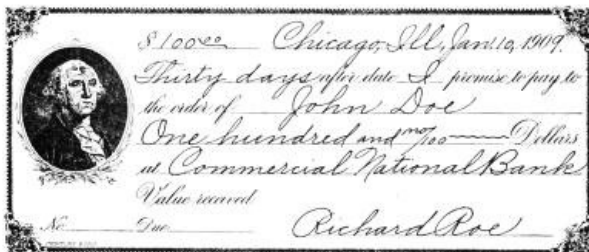 $100.00 Chicago, Ill., Jan. 10, 1909.
Thirty days after date I promise to pay to
the order of John Doe
One hundred and no/100 Dollars
at Commercial National Bank
Value received
No. Due Richard Roe